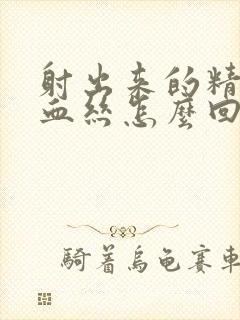 射出来的精
血丝怎麼回
騎着烏龜賽車